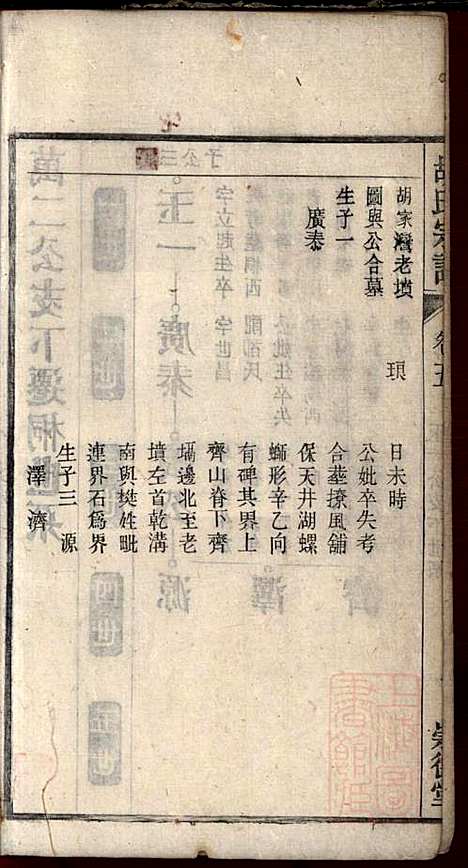 胡氏宗譜
卷五
崇德堂
胡家灣老墳
圖與公合墓
生子一
廣泰
頊
日未時
公妣卒失考
合塟撩風舖
保天井湖螺
螄形辛乙向
有碑其界上
齊山脊下齊
塥邊北至老
墳左首乾溝
南與樊姓毗
連界石爲界
生子三
源
濟
澤